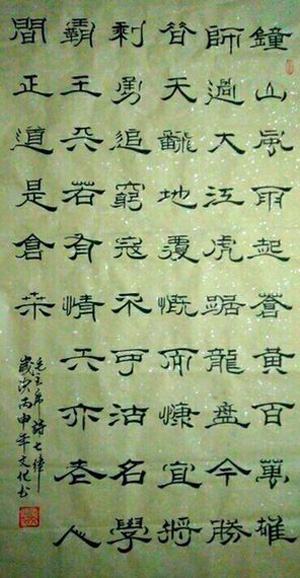 鐘山風雨起蒼黃百萬雄
師過大江虎踞龍盤今勝
昔天飜地覆慨而慷宜將
剩勇追窮寇不可沽名學
霸王天若有情天亦老人
間正道是倉桒
毛主席詩七律
歲次丙申年文化书